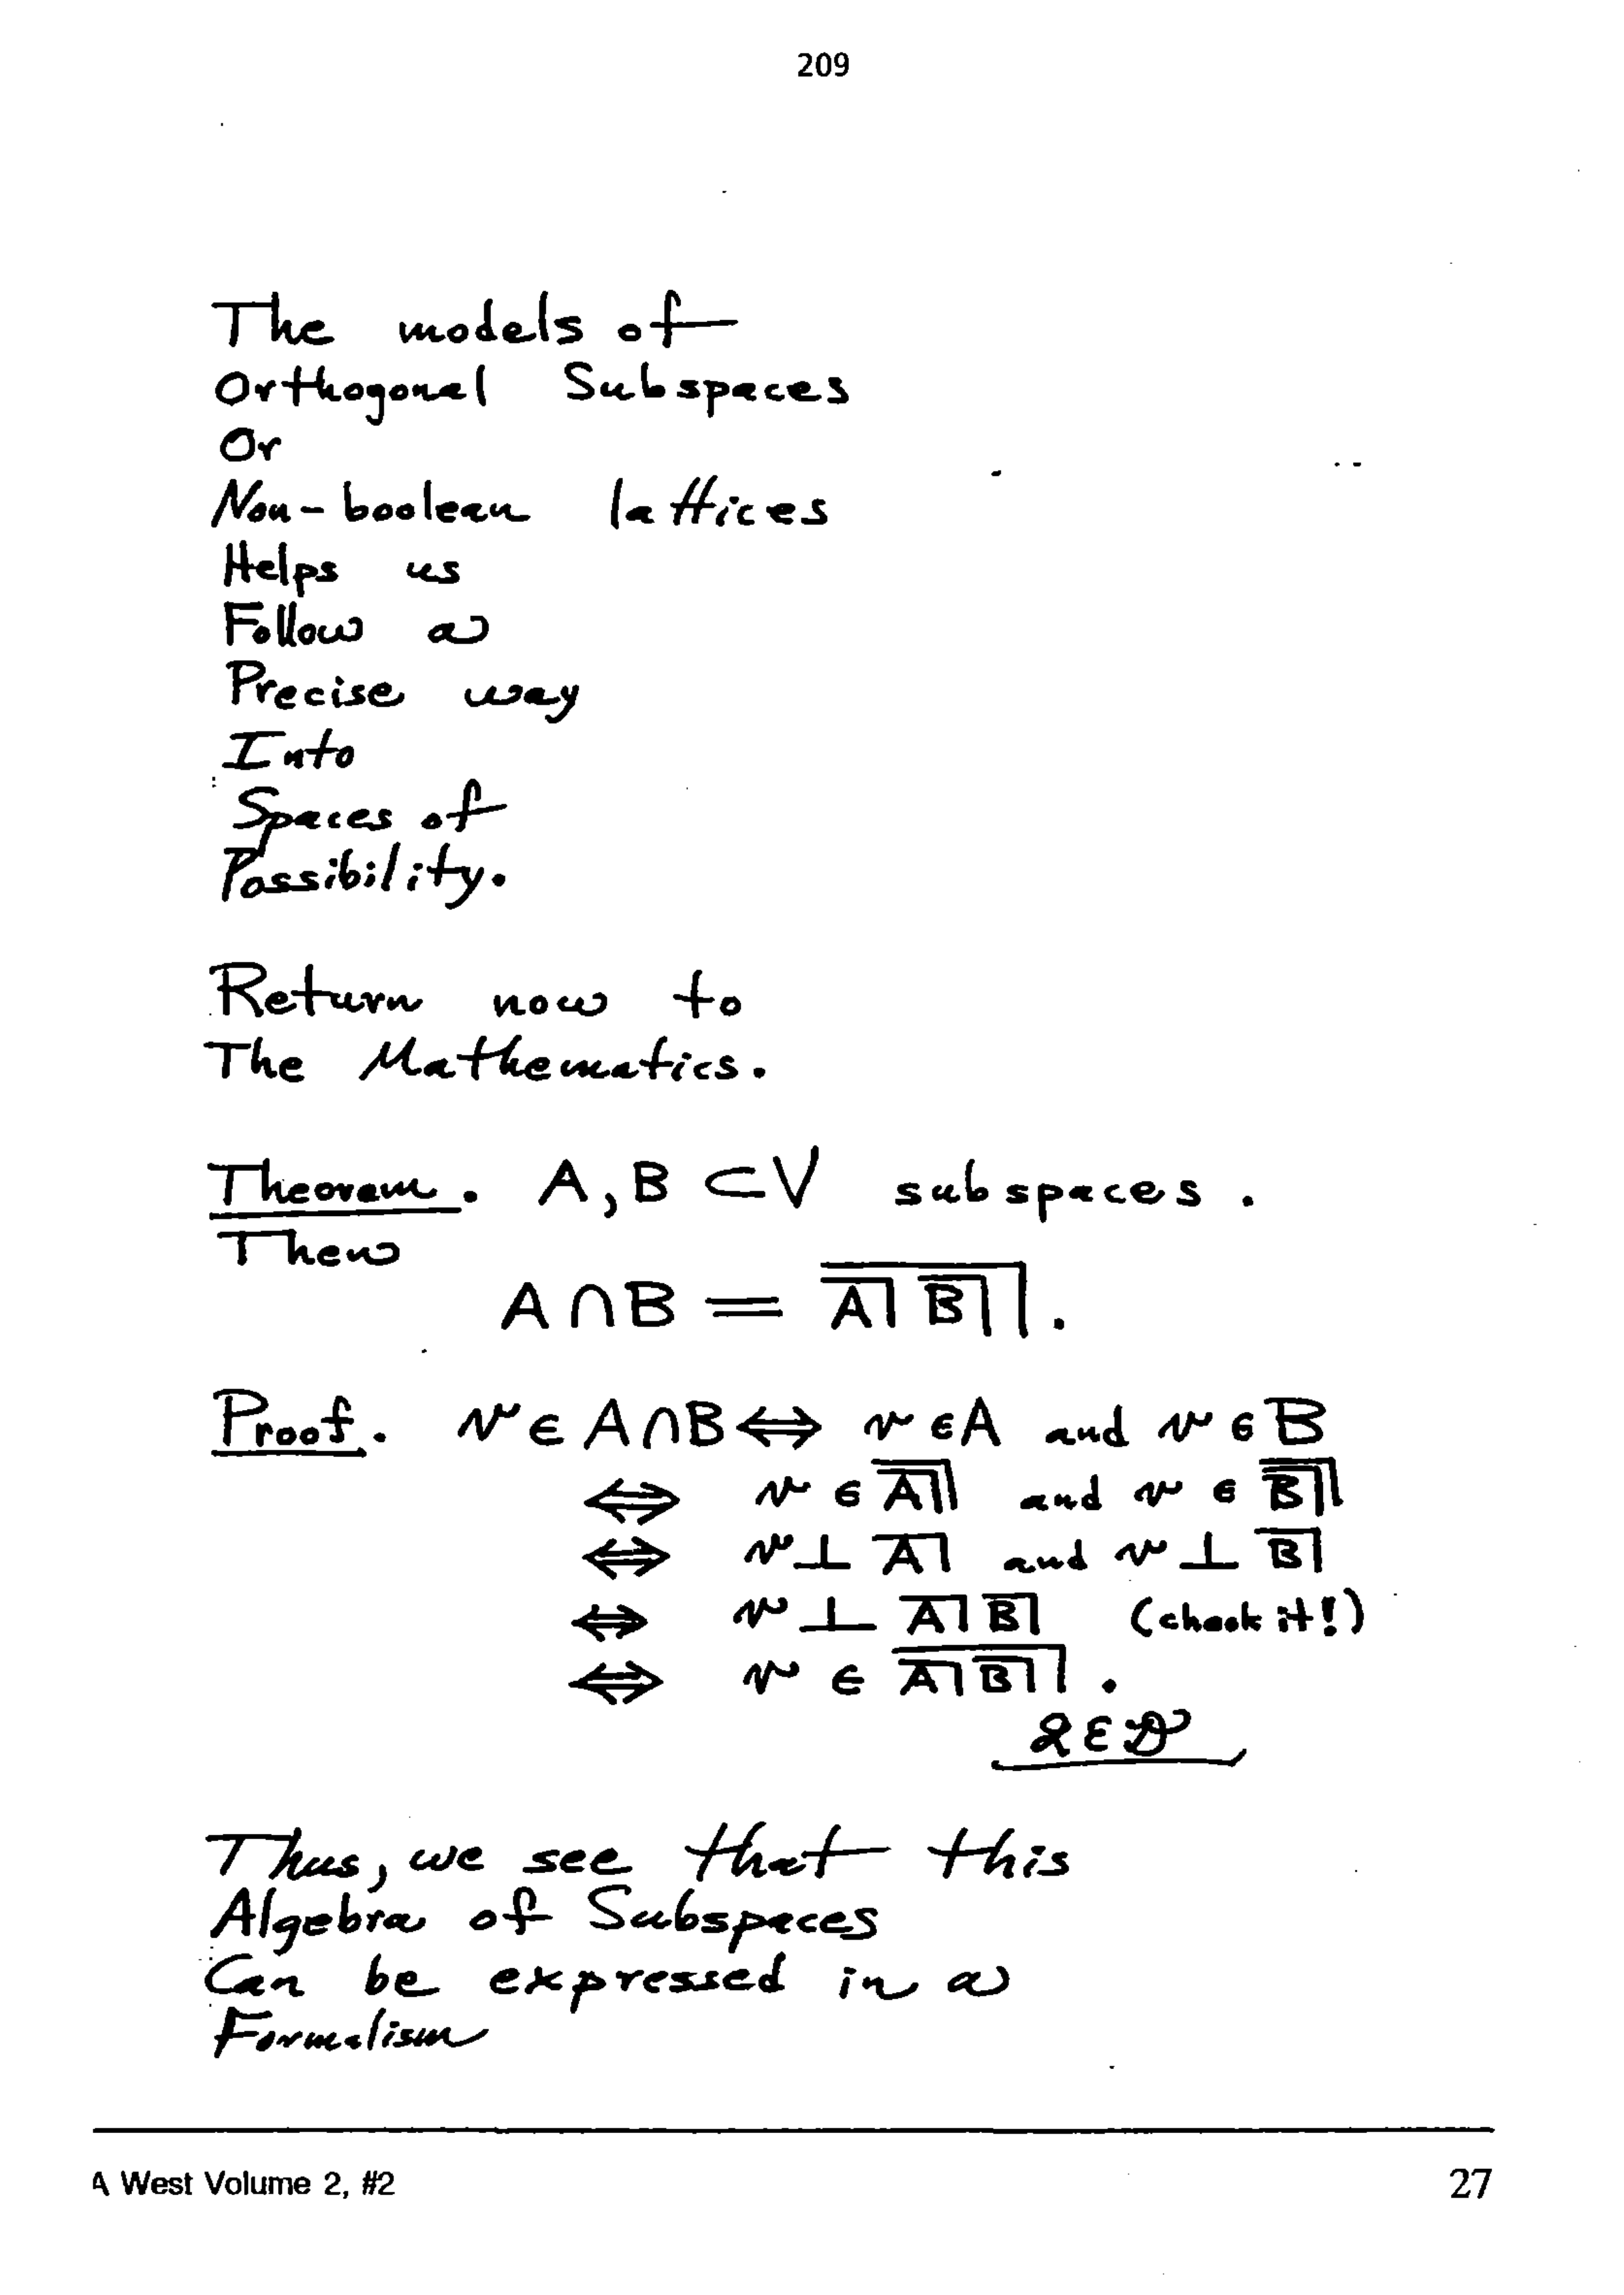 209
The models of
Orthogonal Subspaces
Or
Non-boolean lattices
Helps us
Follow a
Precise way
Into
Spaces of
Possibility.
Return now to
The Mathematics.
Theorem. A, B ⊂ V subspaces.
Then
A ∩ B = $\overline{\overline{A}|\ \overline{B}|}|$.
Proof. v ∈ A ∩ B ⟺ v ∈ A and v ∈ B
⟺ v ∈ $\overline{\overline{A}|}|$ and v ∈ $\overline{\overline{B}|}|$
⟺ v ⊥ $\overline{A}|$ and v ⊥ $\overline{B}|$
⟺ v ⊥ $\overline{A}|\ \overline{B}|$ (check it!)
⟺ v ∈ $\overline{\overline{A}|\ \overline{B}|}|$.
QED
Thus, we see that this
Algebra of Subspaces
Can be expressed in a
Formalism
A West Volume 2, #2
27